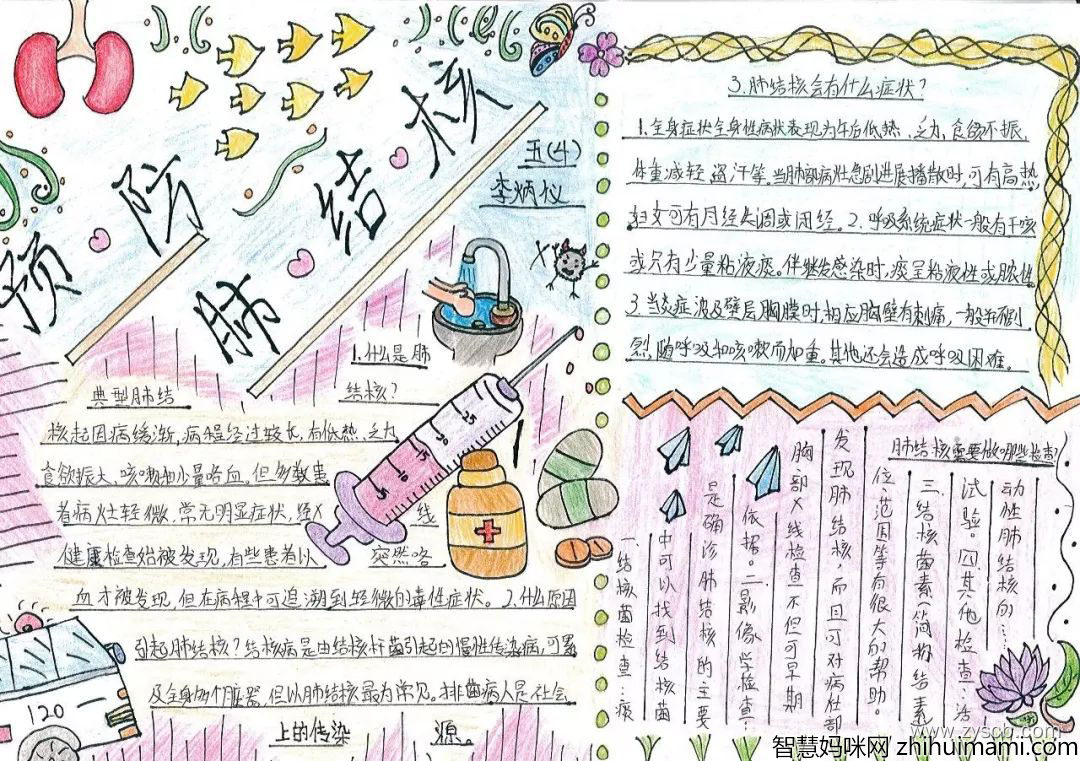 预·防
肺·结·核
五(4)
李炳仪
1.什么是肺
结核?
典型肺结
核起因病缓渐,病程经过较长,有低热、乏力、
食欲振大、咳嗽和少量咯血,但多数患
者病灶轻微,常无明显症状,经X线
健康检查始被发现,有些患者以突然咯
血才被发现,但在病程中可追溯到轻微的毒性症状。2.什么原因
引起肺结核?结核病是由结核杆菌引起的慢性传染病,可累
及全身多个脏器,但以肺结核最为常见。排菌病人是社会
上的传染源。
120
3.肺结核会有什么症状?
1.全身症状全身性病状表现为午后低热、乏力、食欲不振、
体重减轻、盗汗等。当肺部病灶急剧进展播散时,可有高热,
妇女可有月经失调或闭经。2.呼吸系统症状一般有干咳
或只有少量粘液痰。伴继发感染时,痰呈粘液性或脓性
3.当炎症波及壁层胸膜时,相应胸壁有刺痛,一般并不剧
烈,随呼吸和咳嗽而加重。其他还会造成呼吸困难。
肺结核需要做哪些检查?
一、结核菌检查:痰
中可以找到结核菌
是确诊肺结核的主要
依据。二、影像学检查:
胸部X线检查不但可早期
发现肺结核,而且可对病灶部
位范围等有很大的帮助。
三、结核菌素(简称结素
试验。四其他检查:活
动性肺结核的……
25
www.zyscb.com
智慧妈咪网 zhihuimami.com